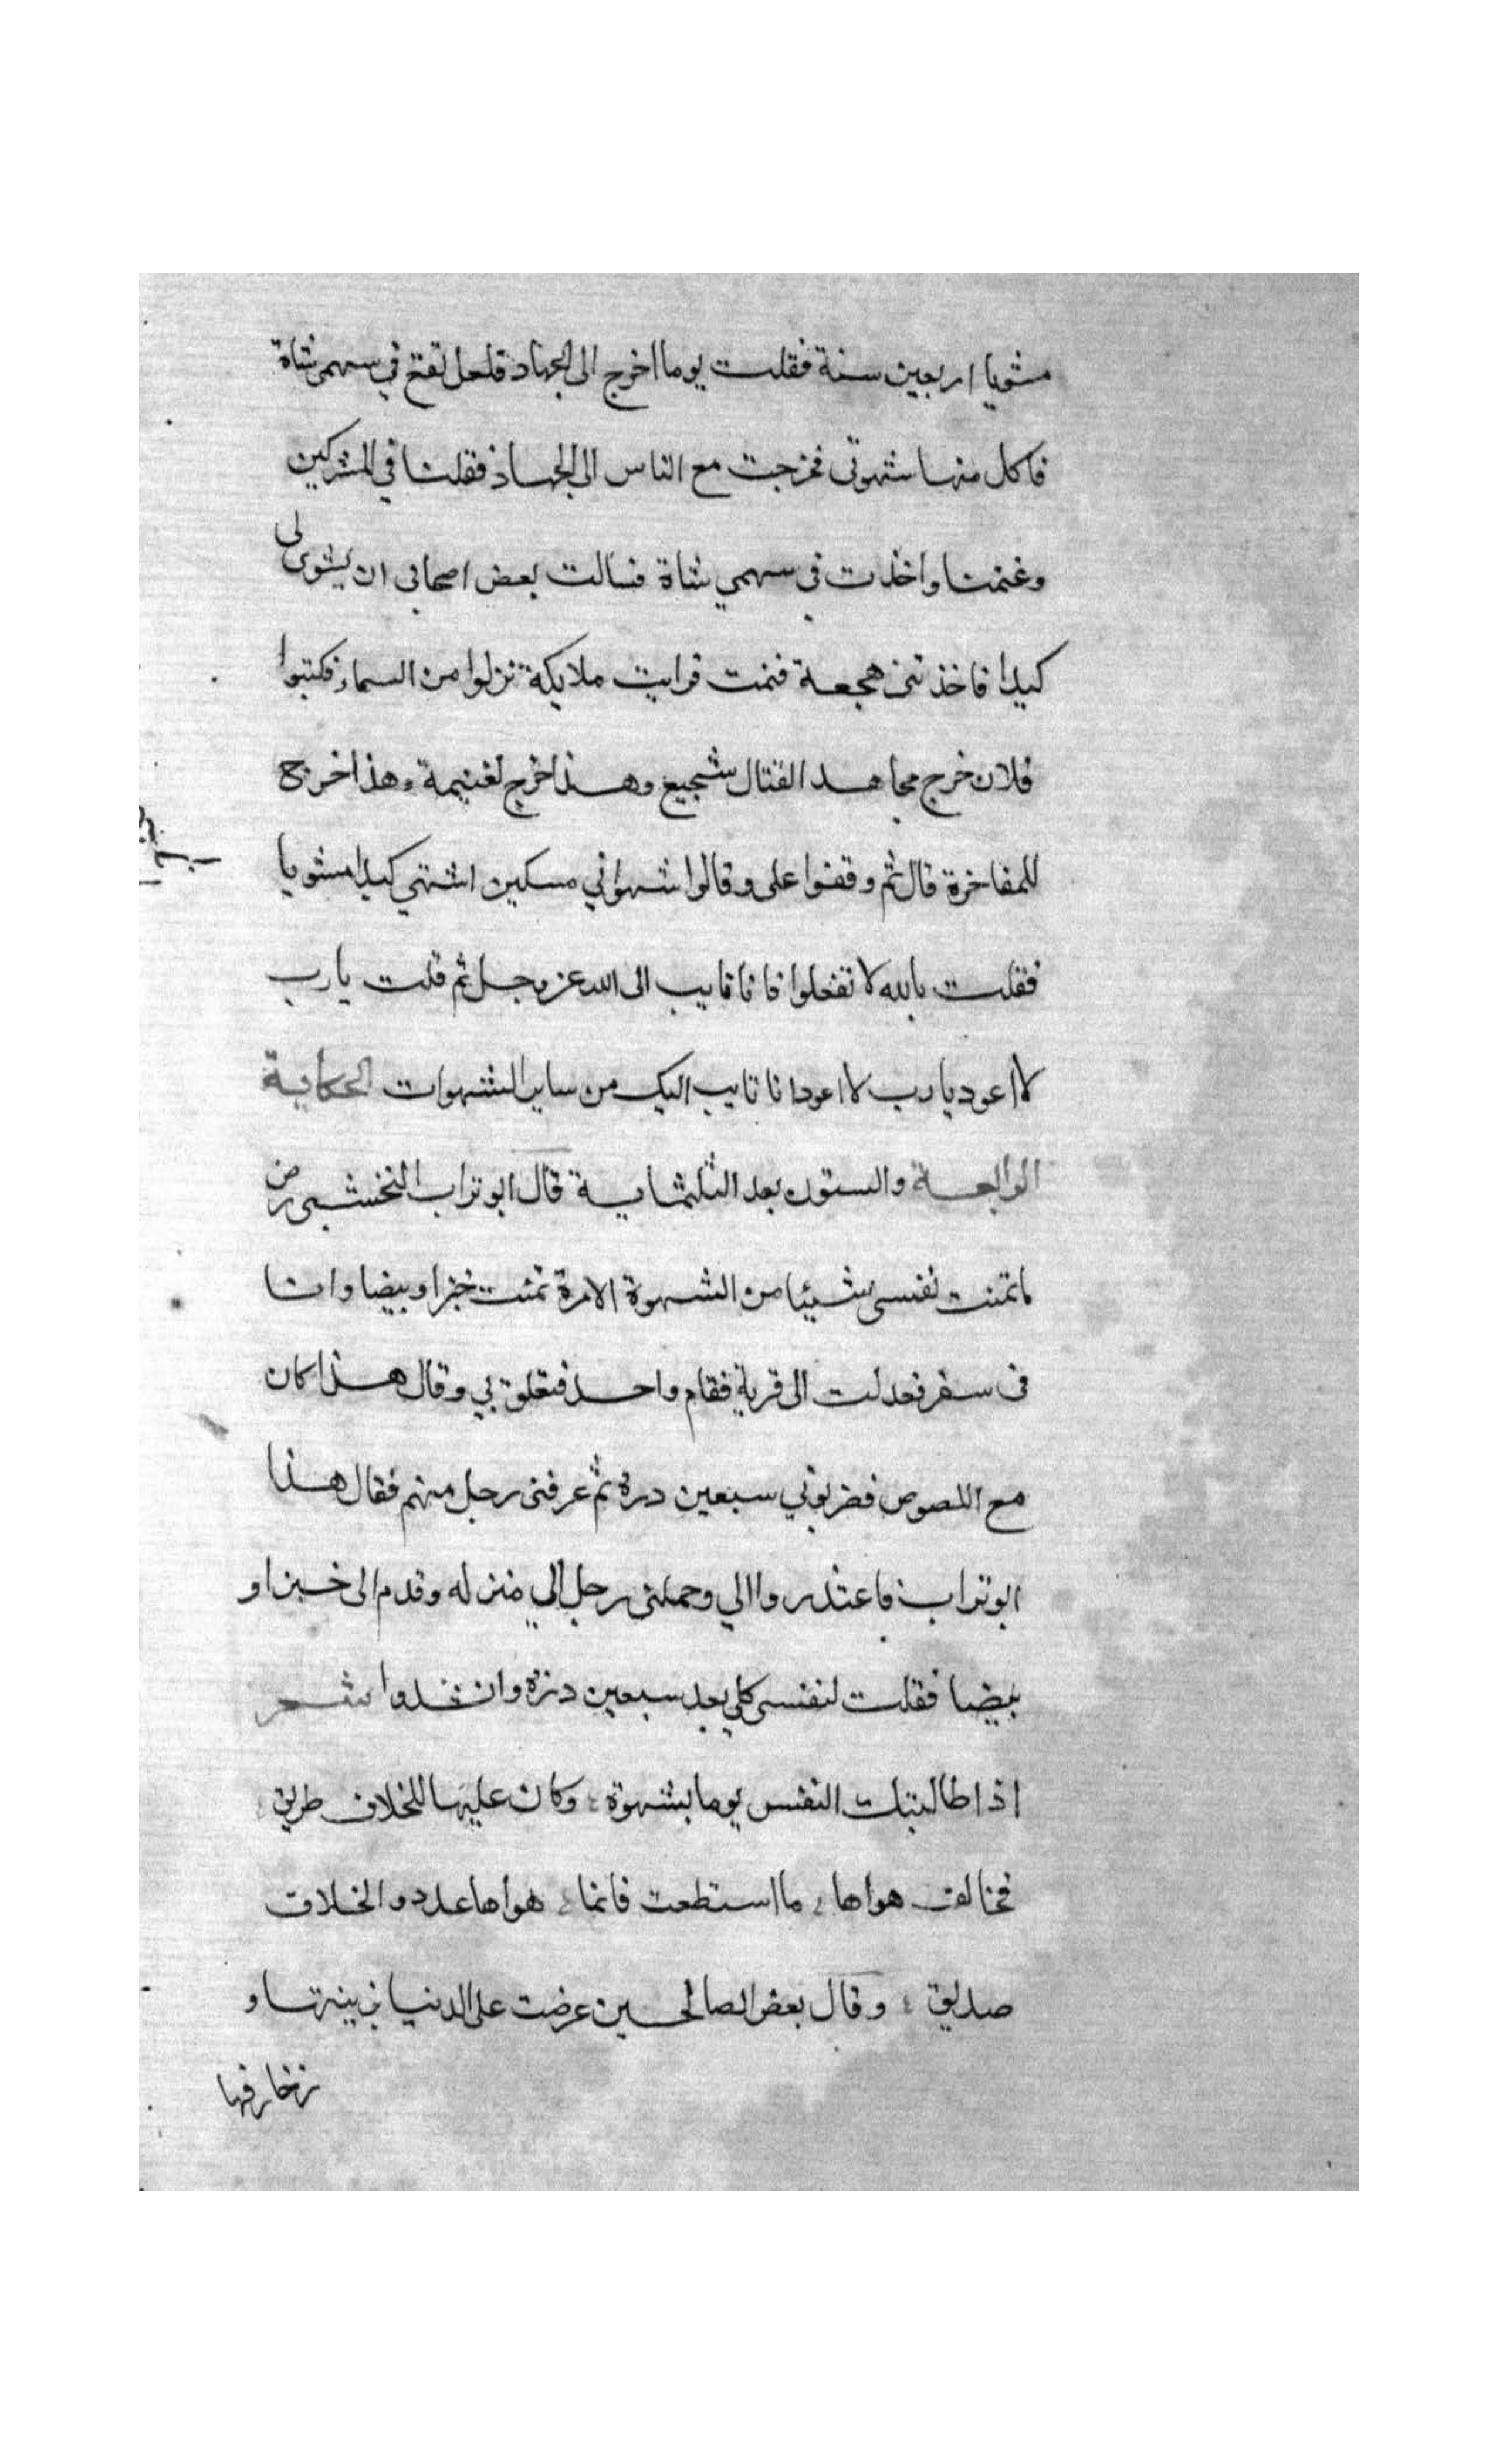 مشويا اربعين سنة فقلت يوما اخرج الى الجهاد فلعل تقع في سهمي شاة
فاكل منها شهوتي فخرجت مع الناس الى الجهاد فقلنا في المشركين
وغنمنا واخذت في سهمي شاة فسالت بعض اصحابي ان يشوى لى
كبدا فاخذتني هجعة فنمت فرايت ملايكة نزلوا من السماء فكتبوا
فلان خرج مجاهد القتال شجيع وهذا خرج لغنيمة وهذا خرج
للمفاخرة قال ثم وقفوا على وقالوا شهواني مسكين اشتهي كبدا مشويا
فقلت بالله لا تفعلوا فانا تايب الى الله عز وجل ثم قلت يارب
لا اعود يا رب لا اعود انا تايب اليك من ساير الشهوات الحكاية
الرابعة والستون بعد الثلثماية قال ابو تراب النخشبى رض
ما تمنت نفسى شيئا من الشهوة الا مرة تمنت خبزا وبيضا وانا
فى سفر فعدلت الى قرية فقام واحد فتعلق بي وقال هذا كان
مع اللصوص فضربوني سبعين درة ثم عرفنى رجل منهم فقال هذا
ابو تراب فاعتذروا الي وحملنى رجل الي منزله وقدم الى خبزا و
بيضا فقلت لنفسى كلي بعد سبعين درة وانشدوا شعر
اذا طالبتك النفس يوما بشهوة وكان عليها للخلاف طريق
فخالف هواها ما استطعت فانما هواها عدو والخلاف
صديق وقال بعض الصالحين عرضت على الدنيا بزينتها و
زخارفها